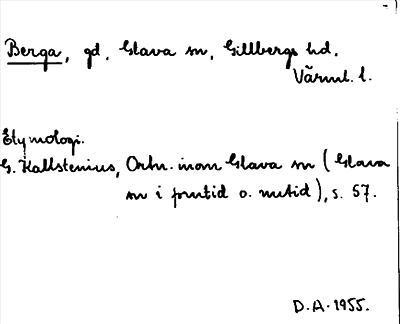 Berga, gd, Glava sn, Gillbergs hd.
Värml. l.
Etymologi.
G. Kallstenius, Ortn. inom Glava sn (Glava
sn i forntid o. nutid), s. 57.
D.A. 1955.